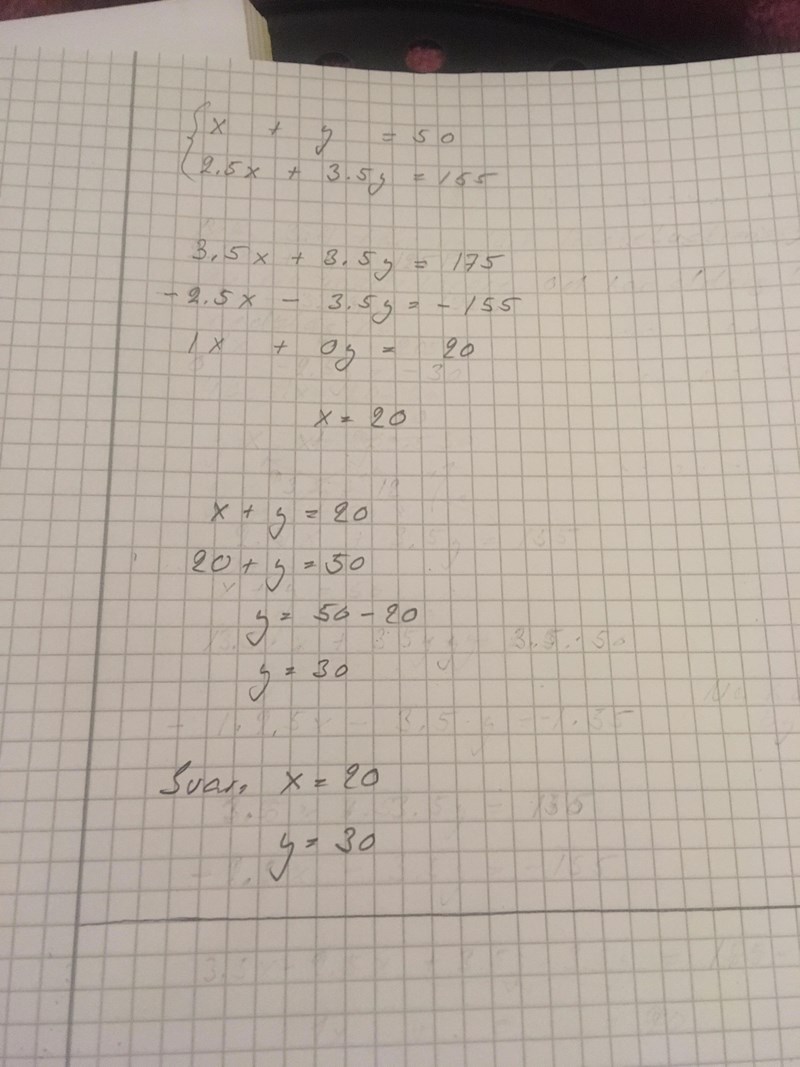 {x + y = 50
2.5x + 3.5y = 155
3.5x + 3.5y = 175
-2.5x - 3.5y = -155
1x + 0y = 20
x = 20
x + y = 20
20 + y = 50
y = 50 - 20
y = 30
Svar, x = 20
y = 30